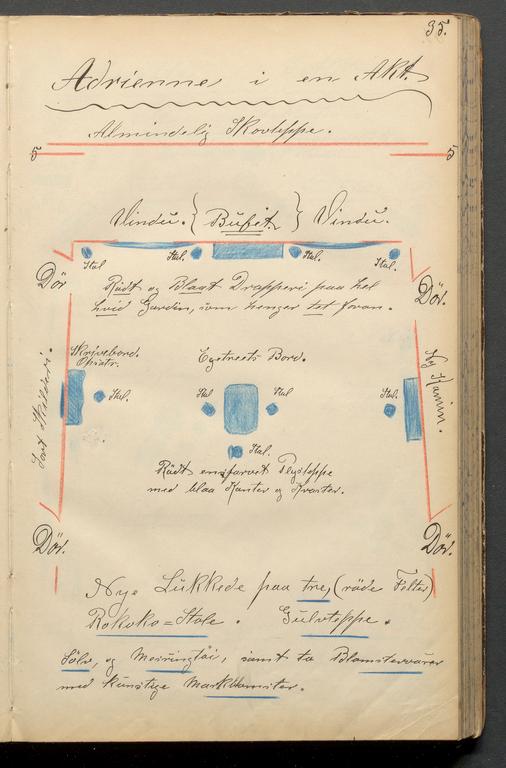 35.
Adrienne i en Akt
Almindelig Skovteppe.
5 5
Vindu. { Bufet } Vindu.
Stol Stol. Stol. Stol.
Dör Dör.
Rödt og Blaat Drapperi paa hel
hvid Gardin, som henger tet foran.
Skrivebord. Egetreets Bord.
Stol. Stol Stol Stol.
Sort Ny Kamin.
Stol.
Rödt ensfarvet Plysteppe
med blaa Kanter og Kvaster.
Dör. Dör.
Nye Lukkede paa tre, (röde Felter)
Rokoko=Stole. Gulvteppe.
Sölv, og samt to Blomstervaser
med kunstige Markblomster.